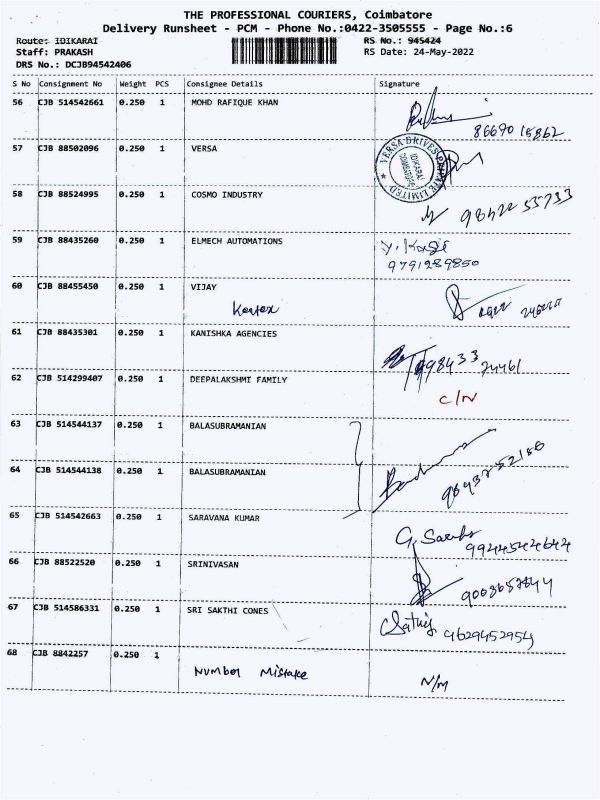 THE PROFESSIONAL COURIERS, Coimbatore
Delivery Runsheet - PCM - Phone No.:0422-3505555 - Page No.:6
Route: IDIKARAI RS No.: 945424
Staff: PRAKASH RS Date: 24-May-2022
DRS No.: DCJB94542406
S No Consignment No Weight PCS Consignee Details Signature
56 CJB 514542661 0.250 1 MOHD RAFIQUE KHAN
8667015862
57 CJB 88502096 0.250 1 VERSA
VERSA DRIVES PRIVATE LIMITED
IDIKARAI
58 CJB 88524995 0.250 1 COSMO INDUSTRY
59 CJB 88435260 0.250 1 ELMECH AUTOMATIONS
9791289850
60 CJB 88455450 0.250 1 VIJAY
61 CJB 88435301 0.250 1 KANISHKA AGENCIES
62 CJB 514299407 0.250 1 DEEPALAKSHMI FAMILY
C/N
63 CJB 514544137 0.250 1 BALASUBRAMANIAN
64 CJB 514544138 0.250 1 BALASUBRAMANIAN
9843752186
65 CJB 514542663 0.250 1 SARAVANA KUMAR
66 CJB 88522520 0.250 1 SRINIVASAN
67 CJB 514586331 0.250 1 SRI SAKTHI CONES
9629452954
68 CJB 8842257 0.250 1
Number Mistake N/M